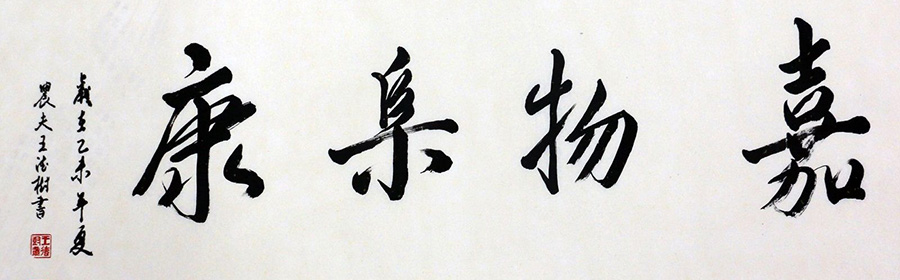 嘉物集康
歲在乙未年夏
農夫王樹書